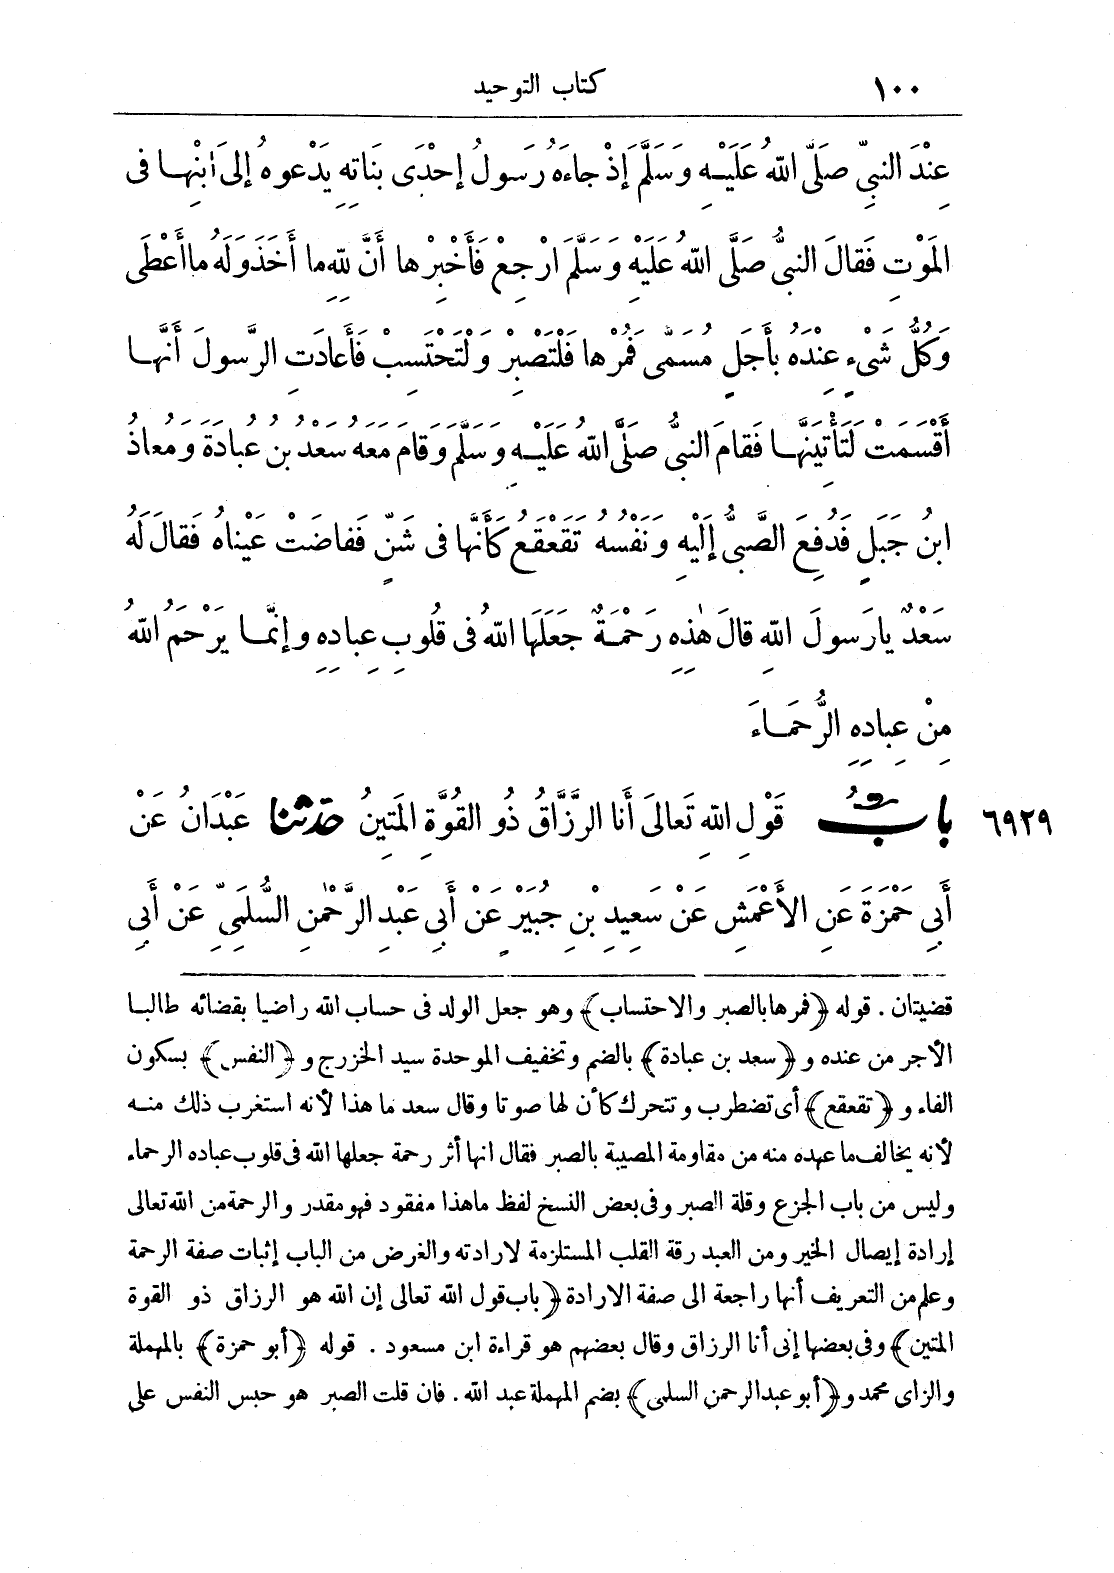 ١٠٠ كتاب التوحيد
عِنْدَ النبيِّ صَلَّى اللهُ عَلَيْهِ وَسَلَّمَ إِذْ جاءَهُ رَسولُ إِحْدَى بَناتِهِ يَدْعوهُ إلى ابْنِها فى
المَوْتِ فَقالَ النبىُّ صَلَّى اللهُ عَلَيْهِ وَسَلَّمَ ارْجِعْ فَأَخْبِرْها أَنَّ لِلّهِ ما أَخَذَ وَلَهُ ما أَعْطَى
وَكُلُّ شَىْءٍ عِنْدَهُ بِأَجَلٍ مُسَمًّى فَمُرْها فَلْتَصْبِرْ وَلْتَحْتَسِبْ فَأَعادَتِ الرَّسولَ أَنَّها
أَقْسَمَتْ لَتَأْتِيَنَّها فَقامَ النبىُّ صَلَّى اللهُ عَلَيْهِ وَسَلَّمَ وَقامَ مَعَهُ سَعْدُ بنُ عُبادَةَ وَمُعاذُ
ابنُ جَبَلٍ فَدُفِعَ الصَّبِىُّ إِلَيْهِ وَنَفْسُهُ تَقَعْقَعُ كَأَنَّها فى شَنٍّ فَفاضَتْ عَيْناهُ فَقالَ لَهُ
سَعْدٌ يا رَسولَ اللهِ قالَ هٰذِهِ رَحْمَةٌ جَعَلَها اللهُ فى قُلوبِ عِبادِهِ وإنَّما يَرْحَمُ اللهُ
مِنْ عِبادِهِ الرُّحَماءَ
٦٩٢٩ بابُ قَوْلِ اللهِ تَعالَى أَنا الرَّزَّاقُ ذُو القُوَّةِ المَتِينُ حدثنا عَبْدَانُ عَنْ
أَبِى حَمْزَةَ عَنِ الأَعْمَشِ عَنْ سَعِيدِ بْنِ جُبَيْرٍ عَنْ أَبِى عَبْدِ الرَّحْمٰنِ السُّلَمِىِّ عَنْ أَبِى
قضيتان . قوله ﴿فمرها بالصبر والاحتساب﴾ وهو جعل الولد فى حساب الله راضيا بقضائه طالبا
الأجر من عنده و ﴿سعد بن عبادة﴾ بالضم وتخفيف الموحدة سيد الخزرج و ﴿النفس﴾ بسكون
الفاء و ﴿تقعقع﴾ أى تضطرب وتتحرك كأن لها صوتا وقال سعد ما هذا لأنه استغرب ذلك منه
لأنه يخالف ما عهده منه من مقاومة المصيبة بالصبر فقال انها أثر رحمة جعلها الله فى قلوب عباده الرحماء
وليس من باب الجزع وقلة الصبر وفى بعض النسخ لفظ ما هذا مفقود فهو مقدر والرحمة من الله تعالى
إرادة إيصال الخير ومن العبد رقة القلب المستلزمة لارادته والغرض من الباب إثبات صفة الرحمة
وعلم من التعريف أنها راجعة الى صفة الارادة ﴿باب قول الله تعالى إن الله هو الرزاق ذو القوة
المتين﴾ وفى بعضها إنى أنا الرزاق وقال بعضهم هو قراءة ابن مسعود . قوله ﴿أبو حمزة﴾ بالمهملة
والزاى محمد و ﴿أبو عبد الرحمن السلمى﴾ بضم المهملة عبد الله . فان قلت الصبر هو حبس النفس على